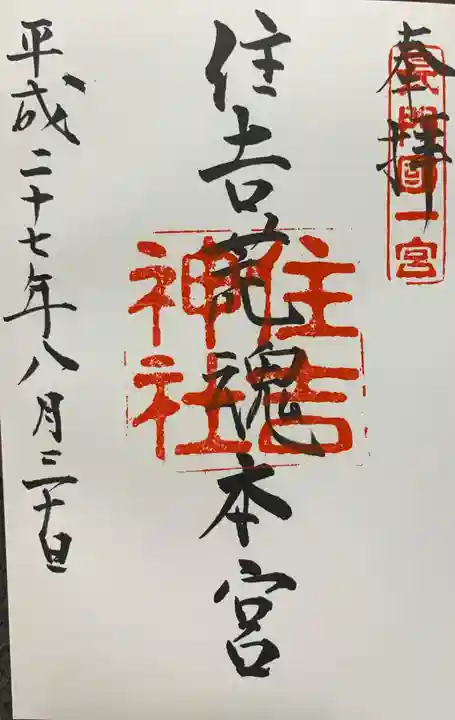 奉拝
長門國一宮
住吉荒魂本宮
住吉神社
平成二十七年八月三十日